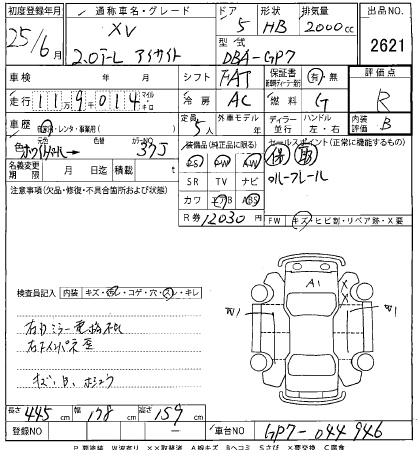 初度登録年月 通称車名・グレード ドア 形状 排気量 出品NO
25/6月 XV 5 HB 2000cc 2621
2.0i-L アイサイト
型式 DBA-GP7
車検 年 月 シフト FAT 保証書 有・無 評価点
走行 11万9千014 マイル キロ 冷房 AC 燃料 G R
車歴 自家用・レンタ・事業用( ) 定員 5人 外車モデル 年 ディーラー 並行 ハンドル 左・右 内装評価 B
色 元色 カラーNO 37J
装備品(純正品に限る) セールスポイント(正常に機能するもの)
名義変更期限 月 日迄 積載量 t
PS PW
SR TV ナビ ルーフレール
カワ エアB ABS
注意事項(欠品・修復・不具合箇所および状態)
R券 12030円
FW キズ・ヒビ割・リペア跡・X要
検査員記入 内装 キズ・汚レ・コゲ・穴・スレ・キレ
A1
X
X
右カミラー電格不
右インパネ
長さ 445cm 幅 178cm 高さ 159cm
登録NO 車台NO GP7-044946
P要塗装 W波有り XX取替済 A線キズ Bヘコミ Sさび X要交換 C腐食